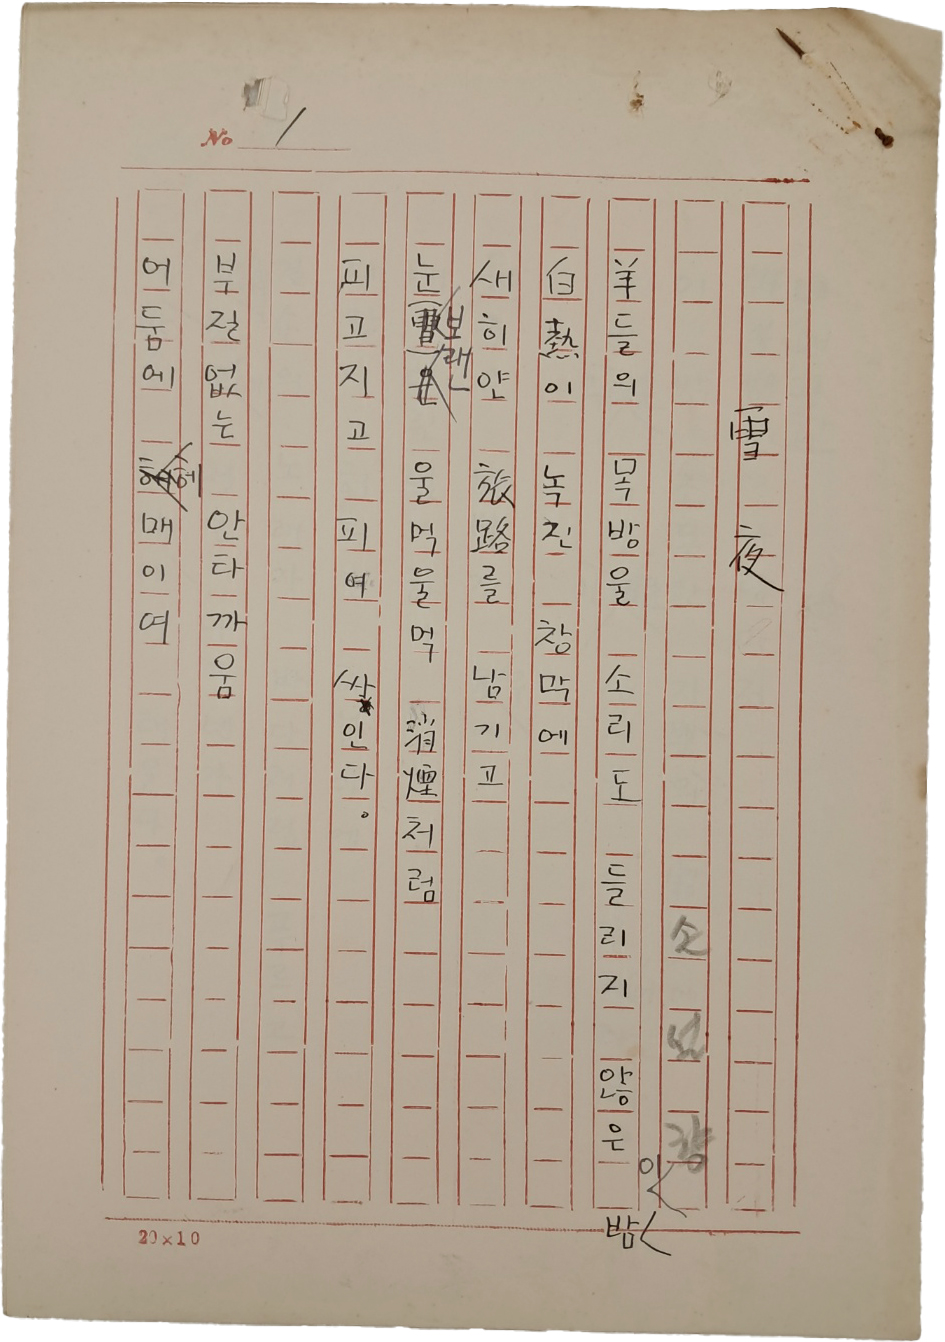 No 1
雪夜
羊들의 목방울 소리도 들리지 않은 이 밤
白熱이 녹진 창막에
새히얀 旅路를 남기고
눈보랜 울먹울먹 消煙처럼
피고지고 피여 싸인다。
부질없는 안타까움
어둠에 헤매이여
20×10